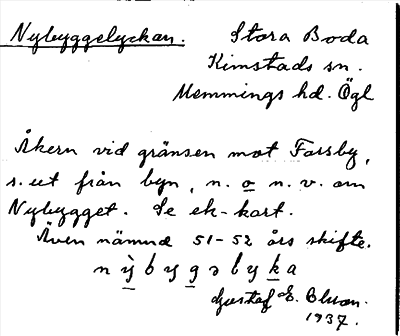 Nybyggelyckan. Stora Boda
Kimstads sn.
Memmings hd. Ögl
Åkern vid gränsen mot Farsby,
s. ut från byn, n. o n. v. om
Nybygget. Se ek-kart.
Även nämnd 51-52 års skifte.
Gustaf E.
1937.